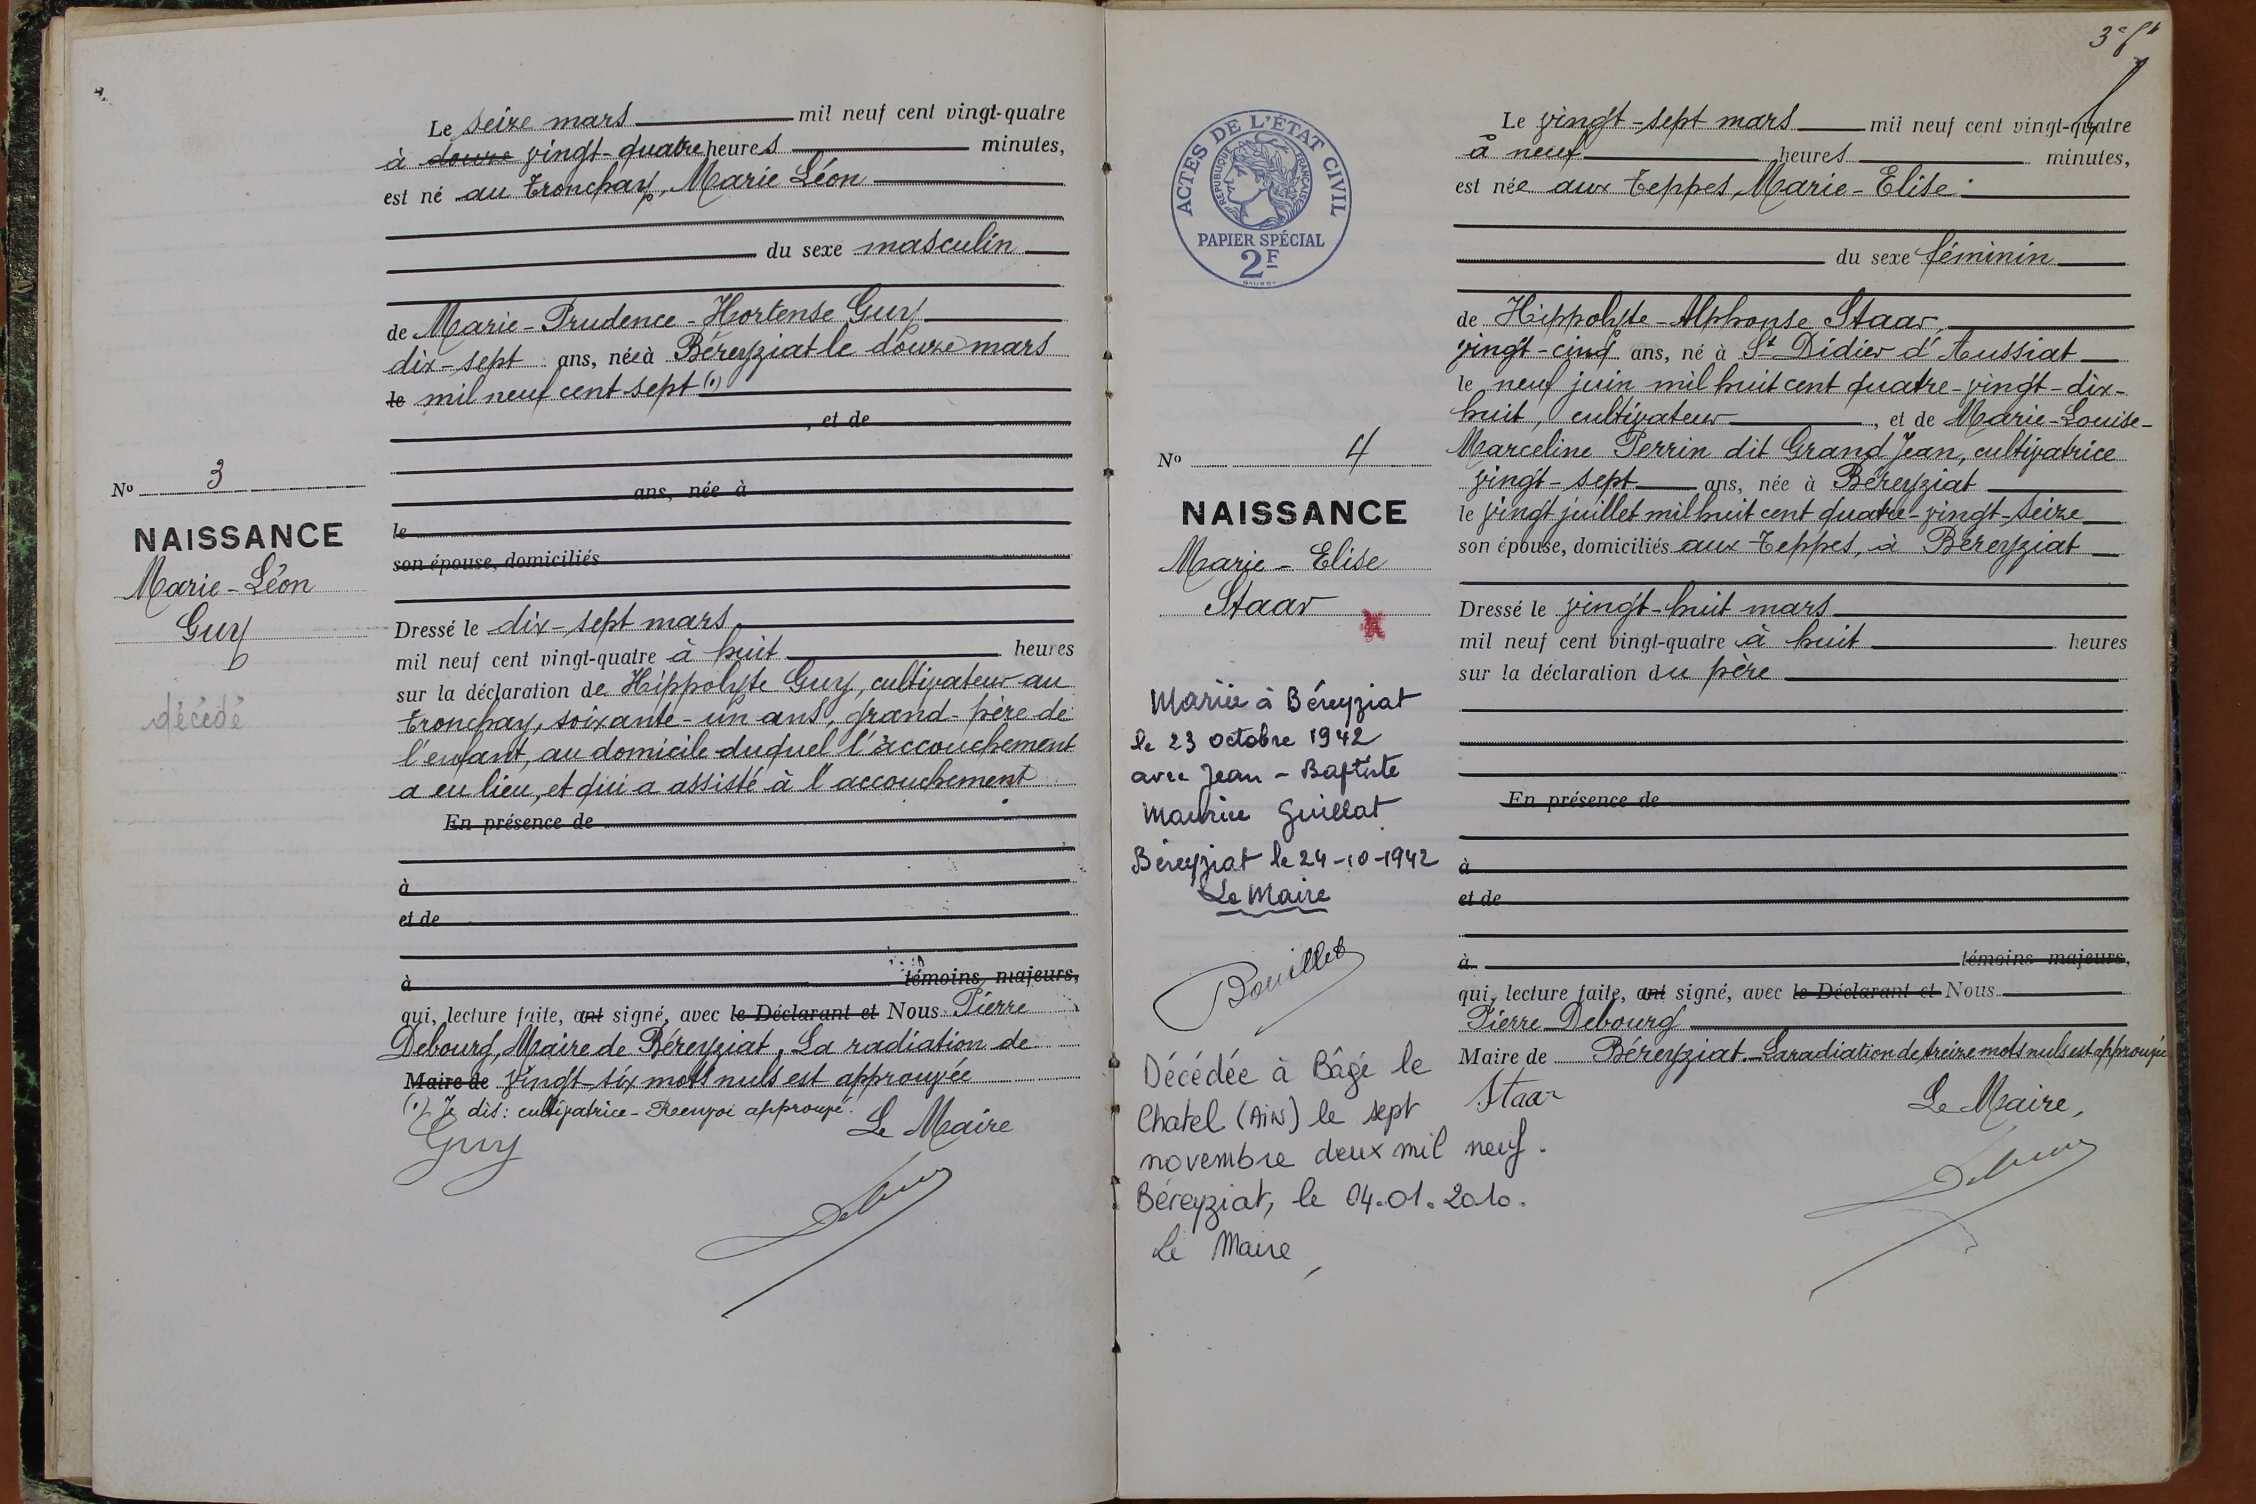 Le seize mars mil neuf cent vingt-quatre
à douze vingt-quatre heures minutes,
est né au Tronchay, Marie Léon
du sexe masculin
de Marie-Prudence-Hortense Guy
dix-sept ans, née à Béreyziat le douze mars
le mil neuf cent sept (1)
, et de
ans, née à
le
son épouse, domiciliés
Nº 3
NAISSANCE
Marie-Léon
Guy
décédé
Dressé le dix-sept mars
mil neuf cent vingt-quatre à huit heures
sur la déclaration de Hippolyte Guy, cultivateur au
Tronchay, soixante-un ans, grand-père de
l'enfant, au domicile duquel l'accouchement
a eu lieu, et qui a assisté à l'accouchement
En présence de
à
et de
à témoins majeurs,
qui, lecture faite, ont signé, avec le Déclarant et Nous Pierre
Debourg, Maire de Béreyziat. La radiation de
Maire de vingt-six mots nuls est approuvée
(1) Je dis: cultivatrice - Renvoi approuvé.
Le Maire
Guy
3e ft
ACTES DE L'ÉTAT CIVIL
RÉPUBLIQUE FRANÇAISE
PAPIER SPÉCIAL
2F
Le vingt-sept mars mil neuf cent vingt-quatre
à neuf heures minutes,
est née aux Teppes, Marie-Elise
du sexe féminin
de Hippolyte-Alphonse Staar,
vingt-cinq ans, né à St Didier d'Aussiat
le neuf juin mil huit cent quatre-vingt-dix-
huit, cultivateur, et de Marie-Louise-
Marceline Perrin dit Grand Jean, cultivatrice
vingt-sept ans, née à Béreyziat
le vingt juillet mil huit cent quatre-vingt-seize
son épouse, domiciliés aux Teppes, à Béreyziat
Nº 4
NAISSANCE
Marie-Elise
Staar
Dressé le vingt-huit mars
mil neuf cent vingt-quatre à huit heures
sur la déclaration du père
En présence de
à
et de
à témoins majeurs,
qui, lecture faite, ont signé, avec le Déclarant et Nous
Pierre Debourg
Maire de Béreyziat. La radiation de treize mots nuls est approuvée
Staar
Le Maire,
Mariée à Béreyziat
le 23 octobre 1942
avec Jean-Baptiste
Maurice Guillat
Béreyziat le 24-10-1942
Le Maire
Bouillet
Décédée à Bâgé le
Chatel (AIN) le sept
novembre deux mil neuf.
Béreyziat, le 04.01.2010.
Le Maire,